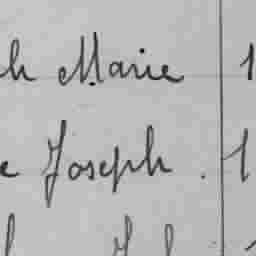 h Marie 1
e Joseph . 1